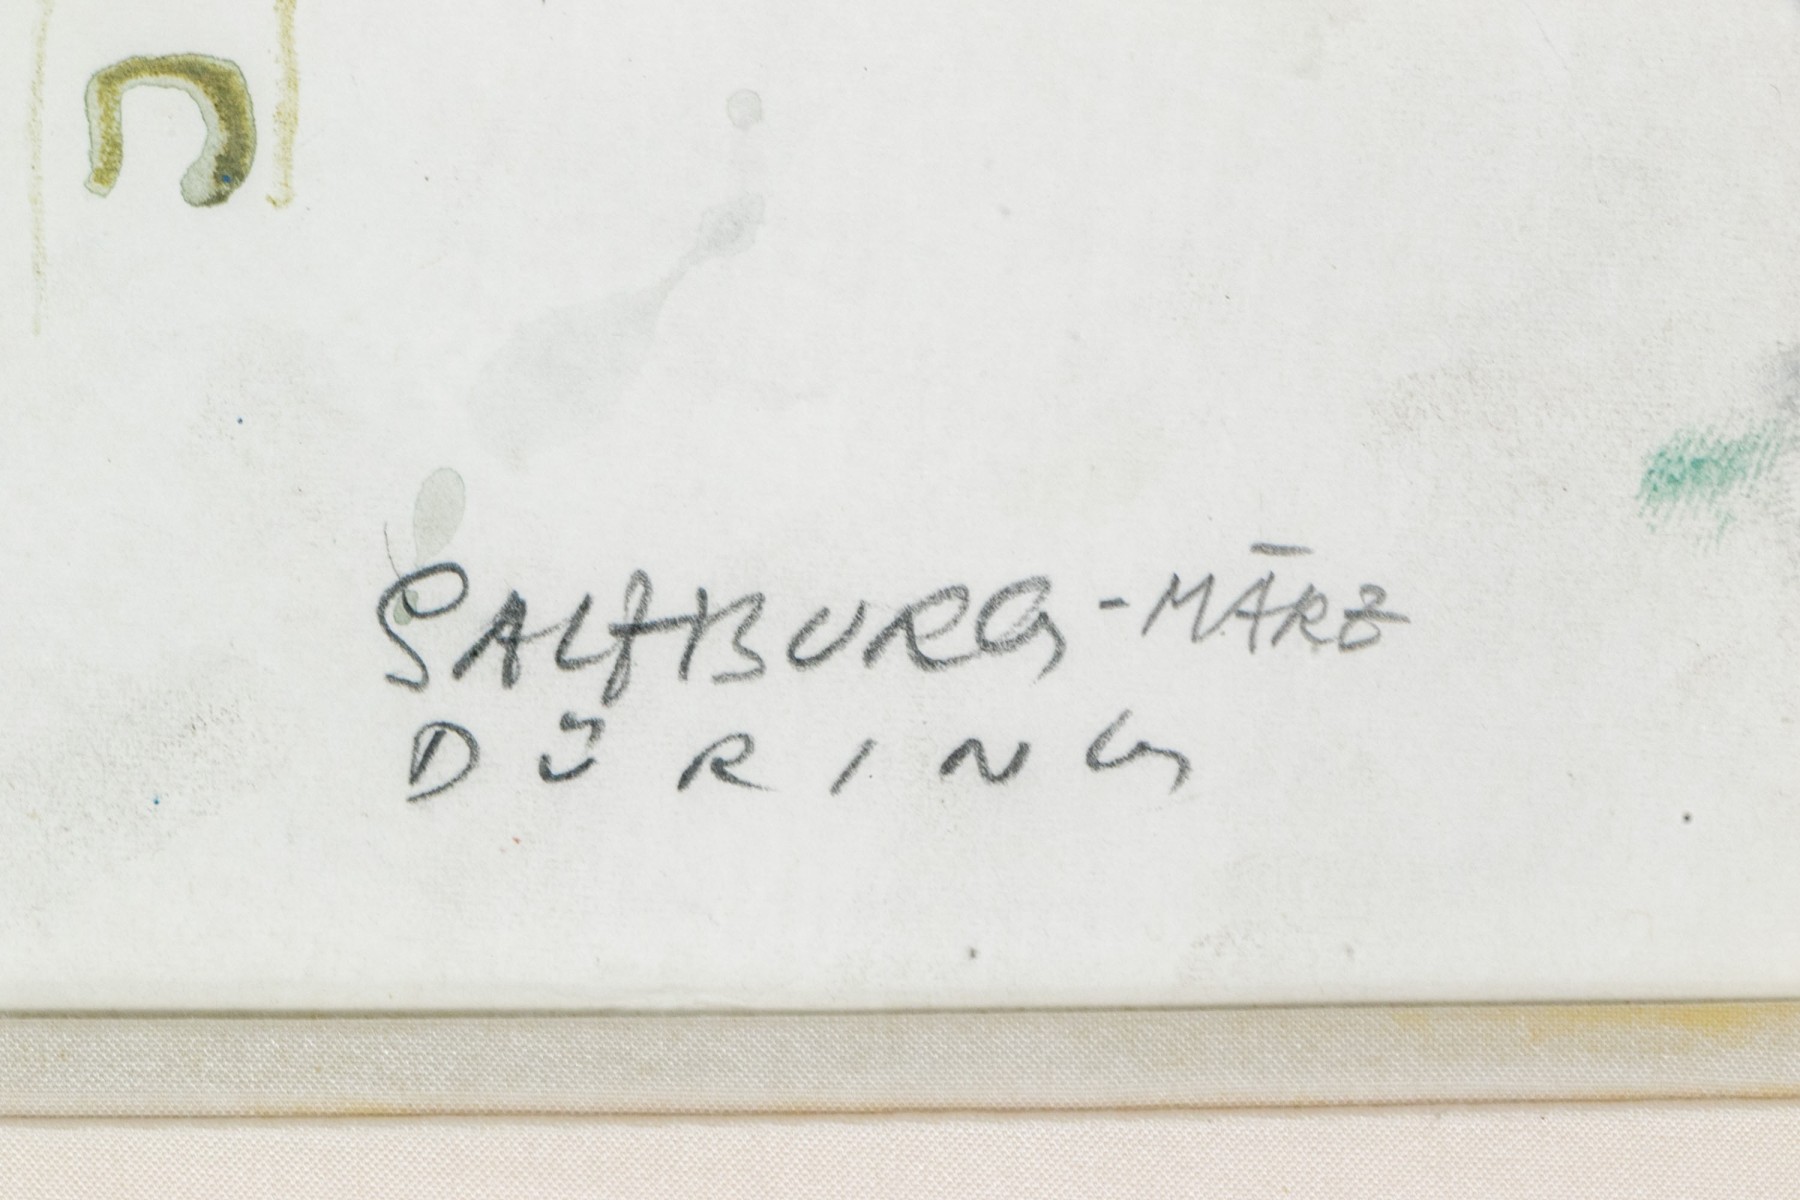 SALZBURG - MÄRZ
DÜRING